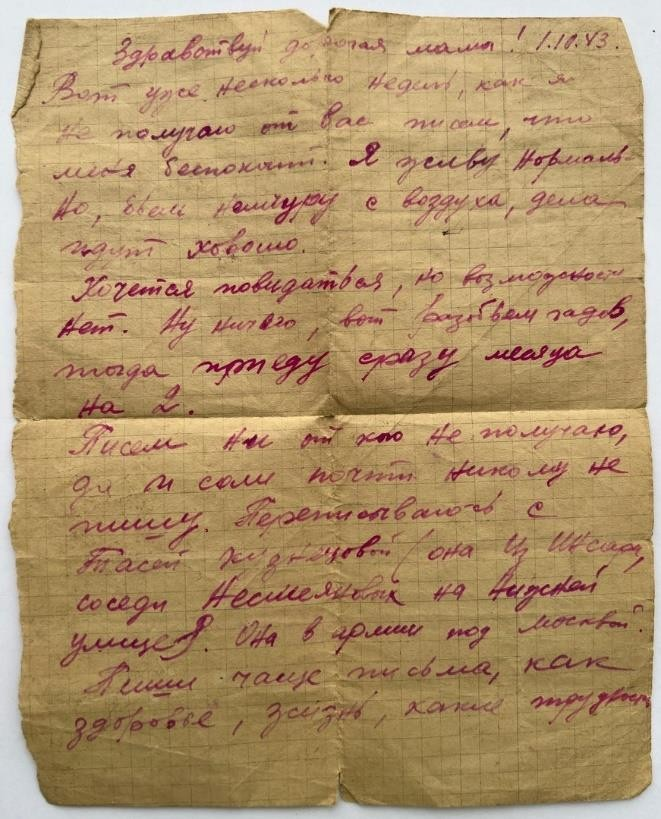 Здравствуй дорогая мама! 1.10.43.
Вот уже несколько недель, как я
не получаю от вас писем, что
меня беспокоит. Я живу нормаль-
но, бьем немчуру с воздуха, дела
идут хорошо.
Хочется повидаться, но возможности
нет. Ну ничего, вот разобьем гадов,
тогда приеду сразу месяца
на 2.
Писем ни от кого не получаю,
да и сам почти никому не
пишу. Переписываюсь с
Тасей Кузнецовой (она из
соседи Несмеяновых на Нижней
улице). Она в армии под Москвой.
Пиши чаще письма, как
здоровье, жизнь, какие трудности